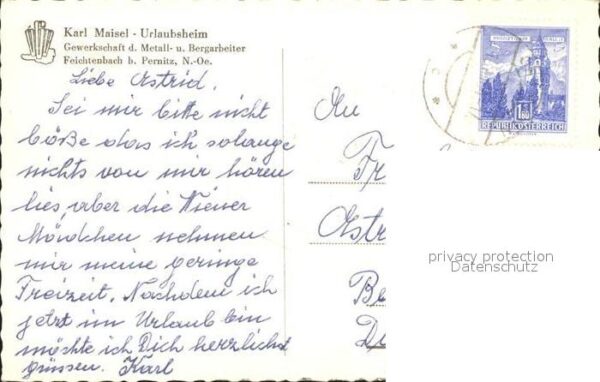 Karl Maisel - Urlaubsheim
Gewerkschaft d. Metall- u. Bergarbeiter
Feichtenbach b. Pernitz, N.-Oe.
Liebe Astrid.
Sei mir bitte nicht
böße das ich solange
nichts von mir hören
lies, aber die Wiener
Mädchen nehmen
mir meine geringe
Freizeit. Nachdem ich
jetzt im Urlaub bin
möchte ich Dich herzlichst
grüssen. Karl
An
Fr
Astri
Be
1.80
REPUBLIK ÖSTERREICH
privacy protection
Datenschutz